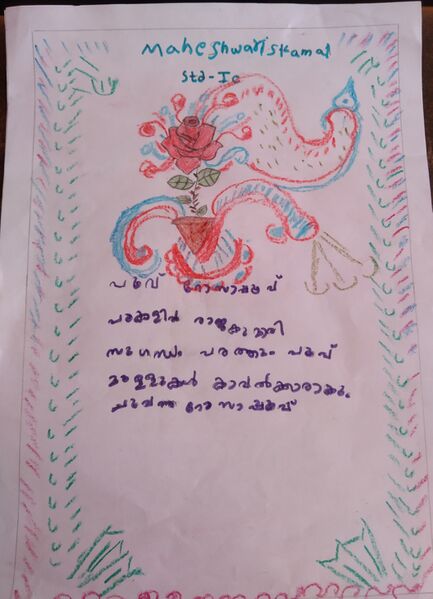 Maheshwari s kamal
Std-Ic
പൂവ് റോസാപ്പൂവ്
പൂക്കളിൽ രാജകുമാരി
സുഗന്ധം പരത്തും പൂവ്
മുള്ളുകൾ കാവൽക്കാരാകും
ചുവന്ന റോസാപ്പൂവ്